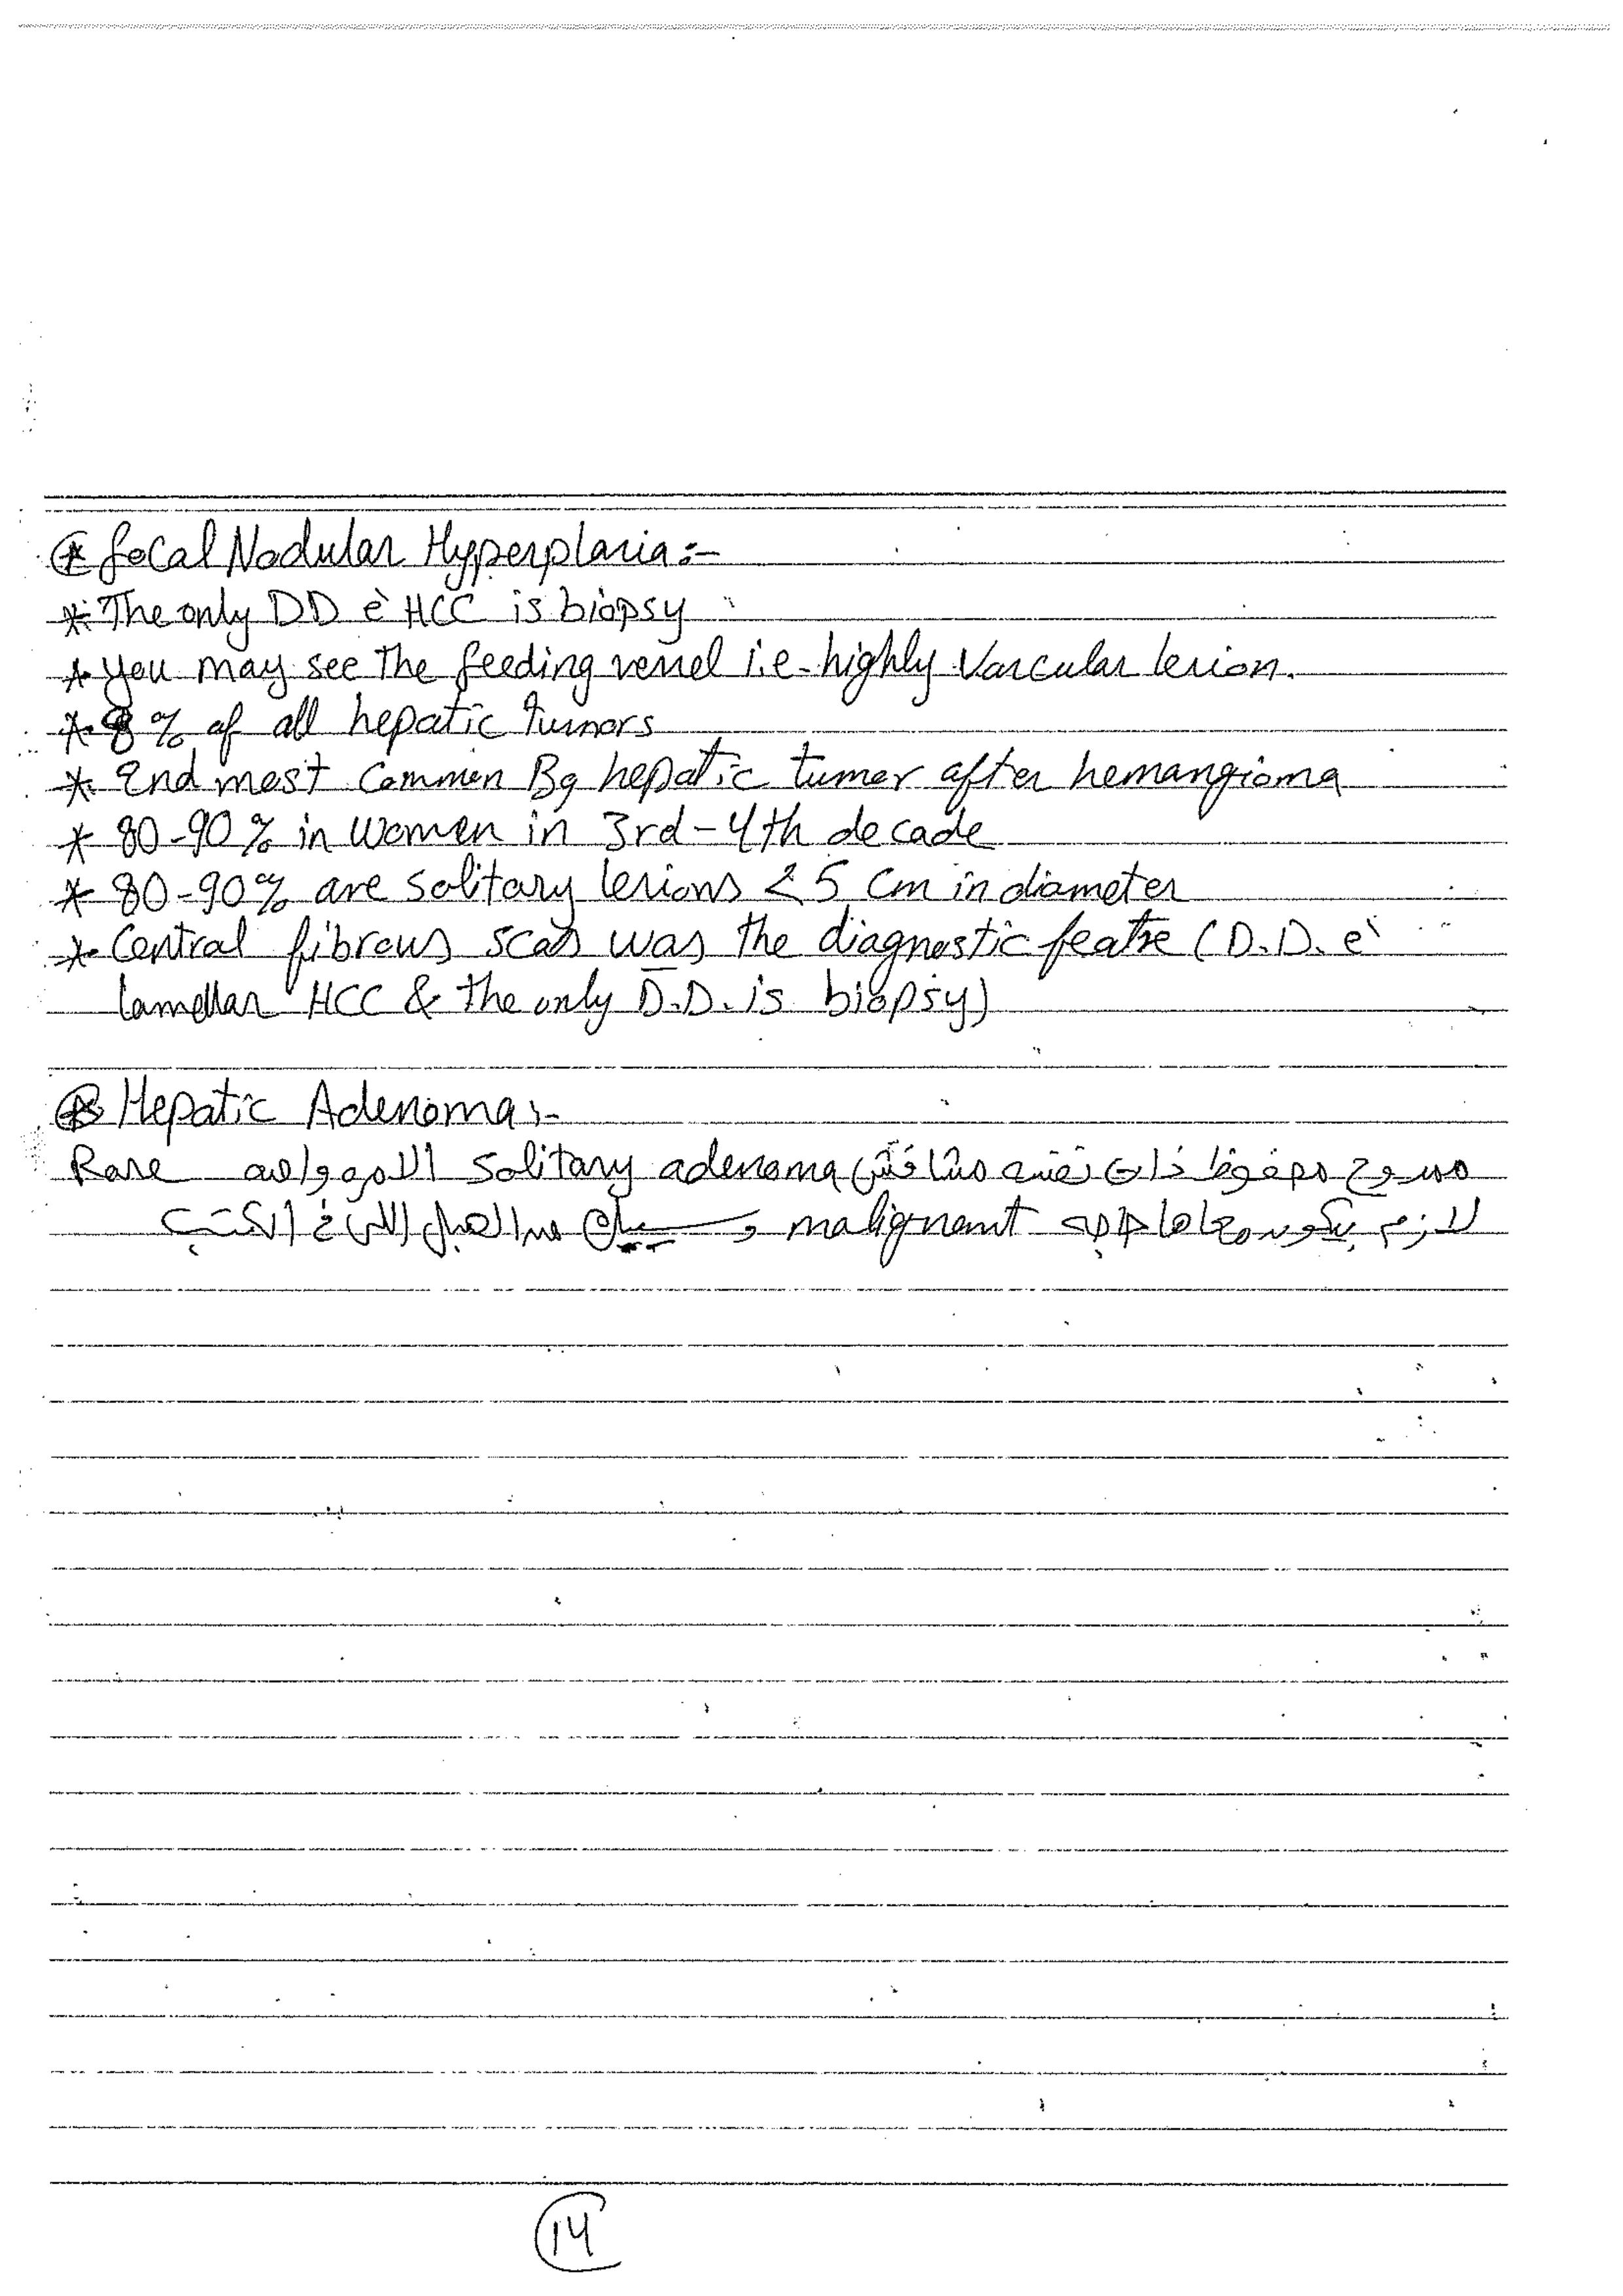 ⊛ focal Nodular Hyperplasia:-
* The only DD è HCC is biopsy
* you may see the feeding vessel i.e. highly vascular lesion.
* 8% of all hepatic tumors
* 2nd most common Bg hepatic tumor after hemangioma
* 80-90% in women in 3rd-4th decade
* 80-90% are solitary lesions < 5 cm in diameter
* Central fibrous scar was the diagnostic featre (D.D. è
lamellar HCC & the only D.D. is biopsy)
⊛ Hepatic Adenoma:-
نفسه مشافش solitary adenoma Rare
لازم يكون معاها حاجة malignant الكتب
14